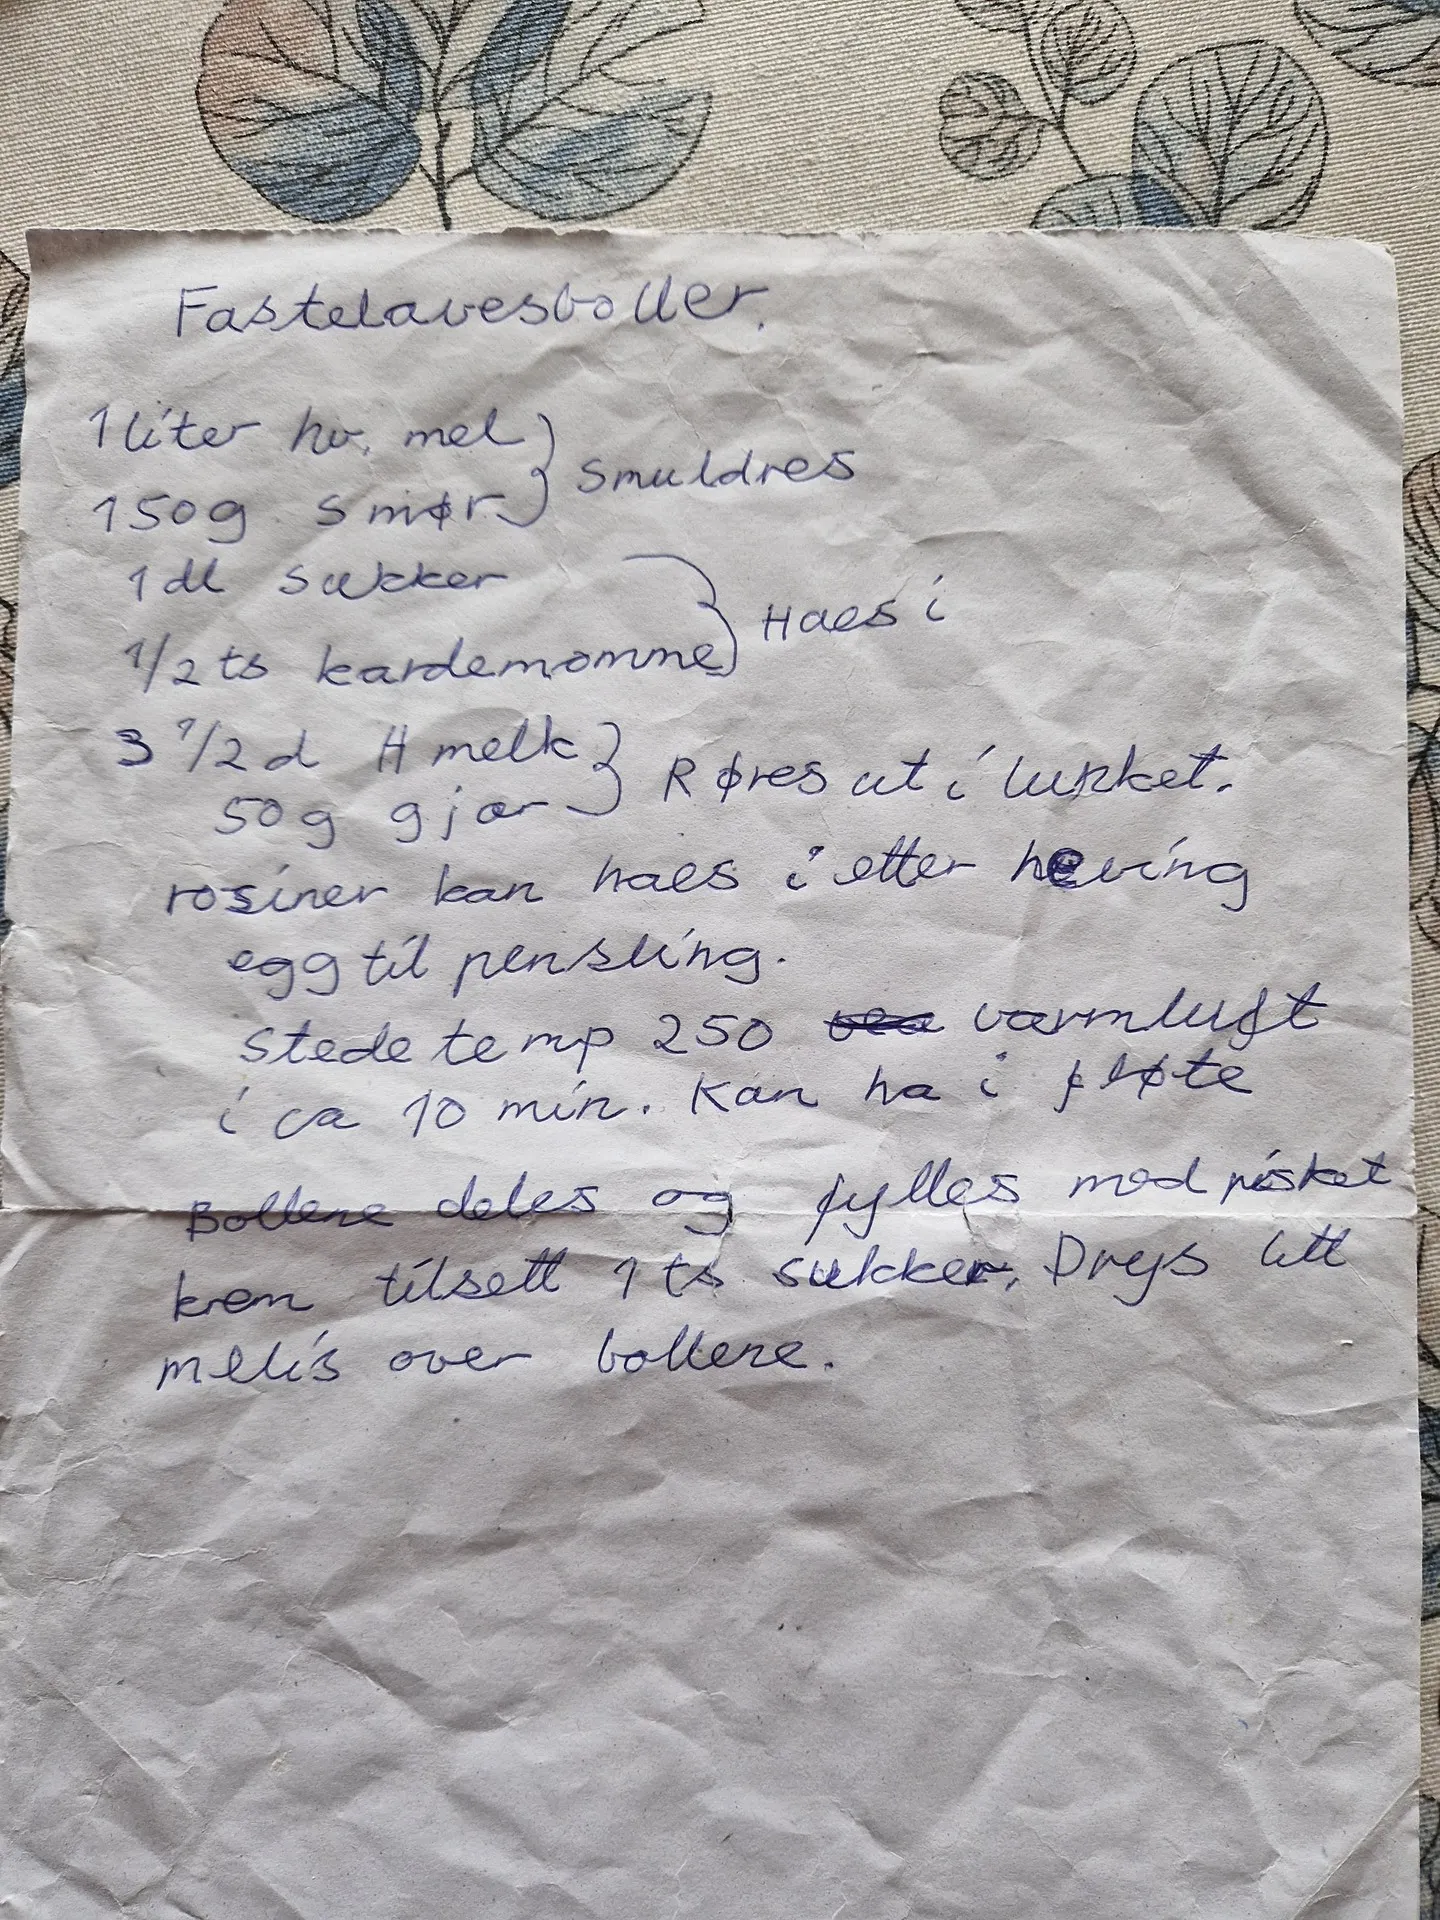 Fastelavesboller.
1 liter hv. mel
150g smør } Smuldres
1 dl sukker
1/2 ts kardemomme } Haes i
3 1/2 d H melk
50g gjær } Røres ut i lunket.
rosiner kan haes i etter heving
egg til pensling.
stede temp 250 varmluft
i ca 10 min. Kan ha i fløte
Bollene deles og fylles med pisket
krem tilsett 1 ts sukker, Drys litt
melis over bollene.